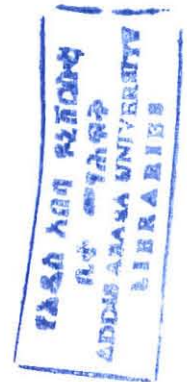 የአዲስ አበባ ዩኒቨርሲቲ
ቤተ መጻሕፍት
ADDIS ABABA UNIVERSITY
LIBRARIES